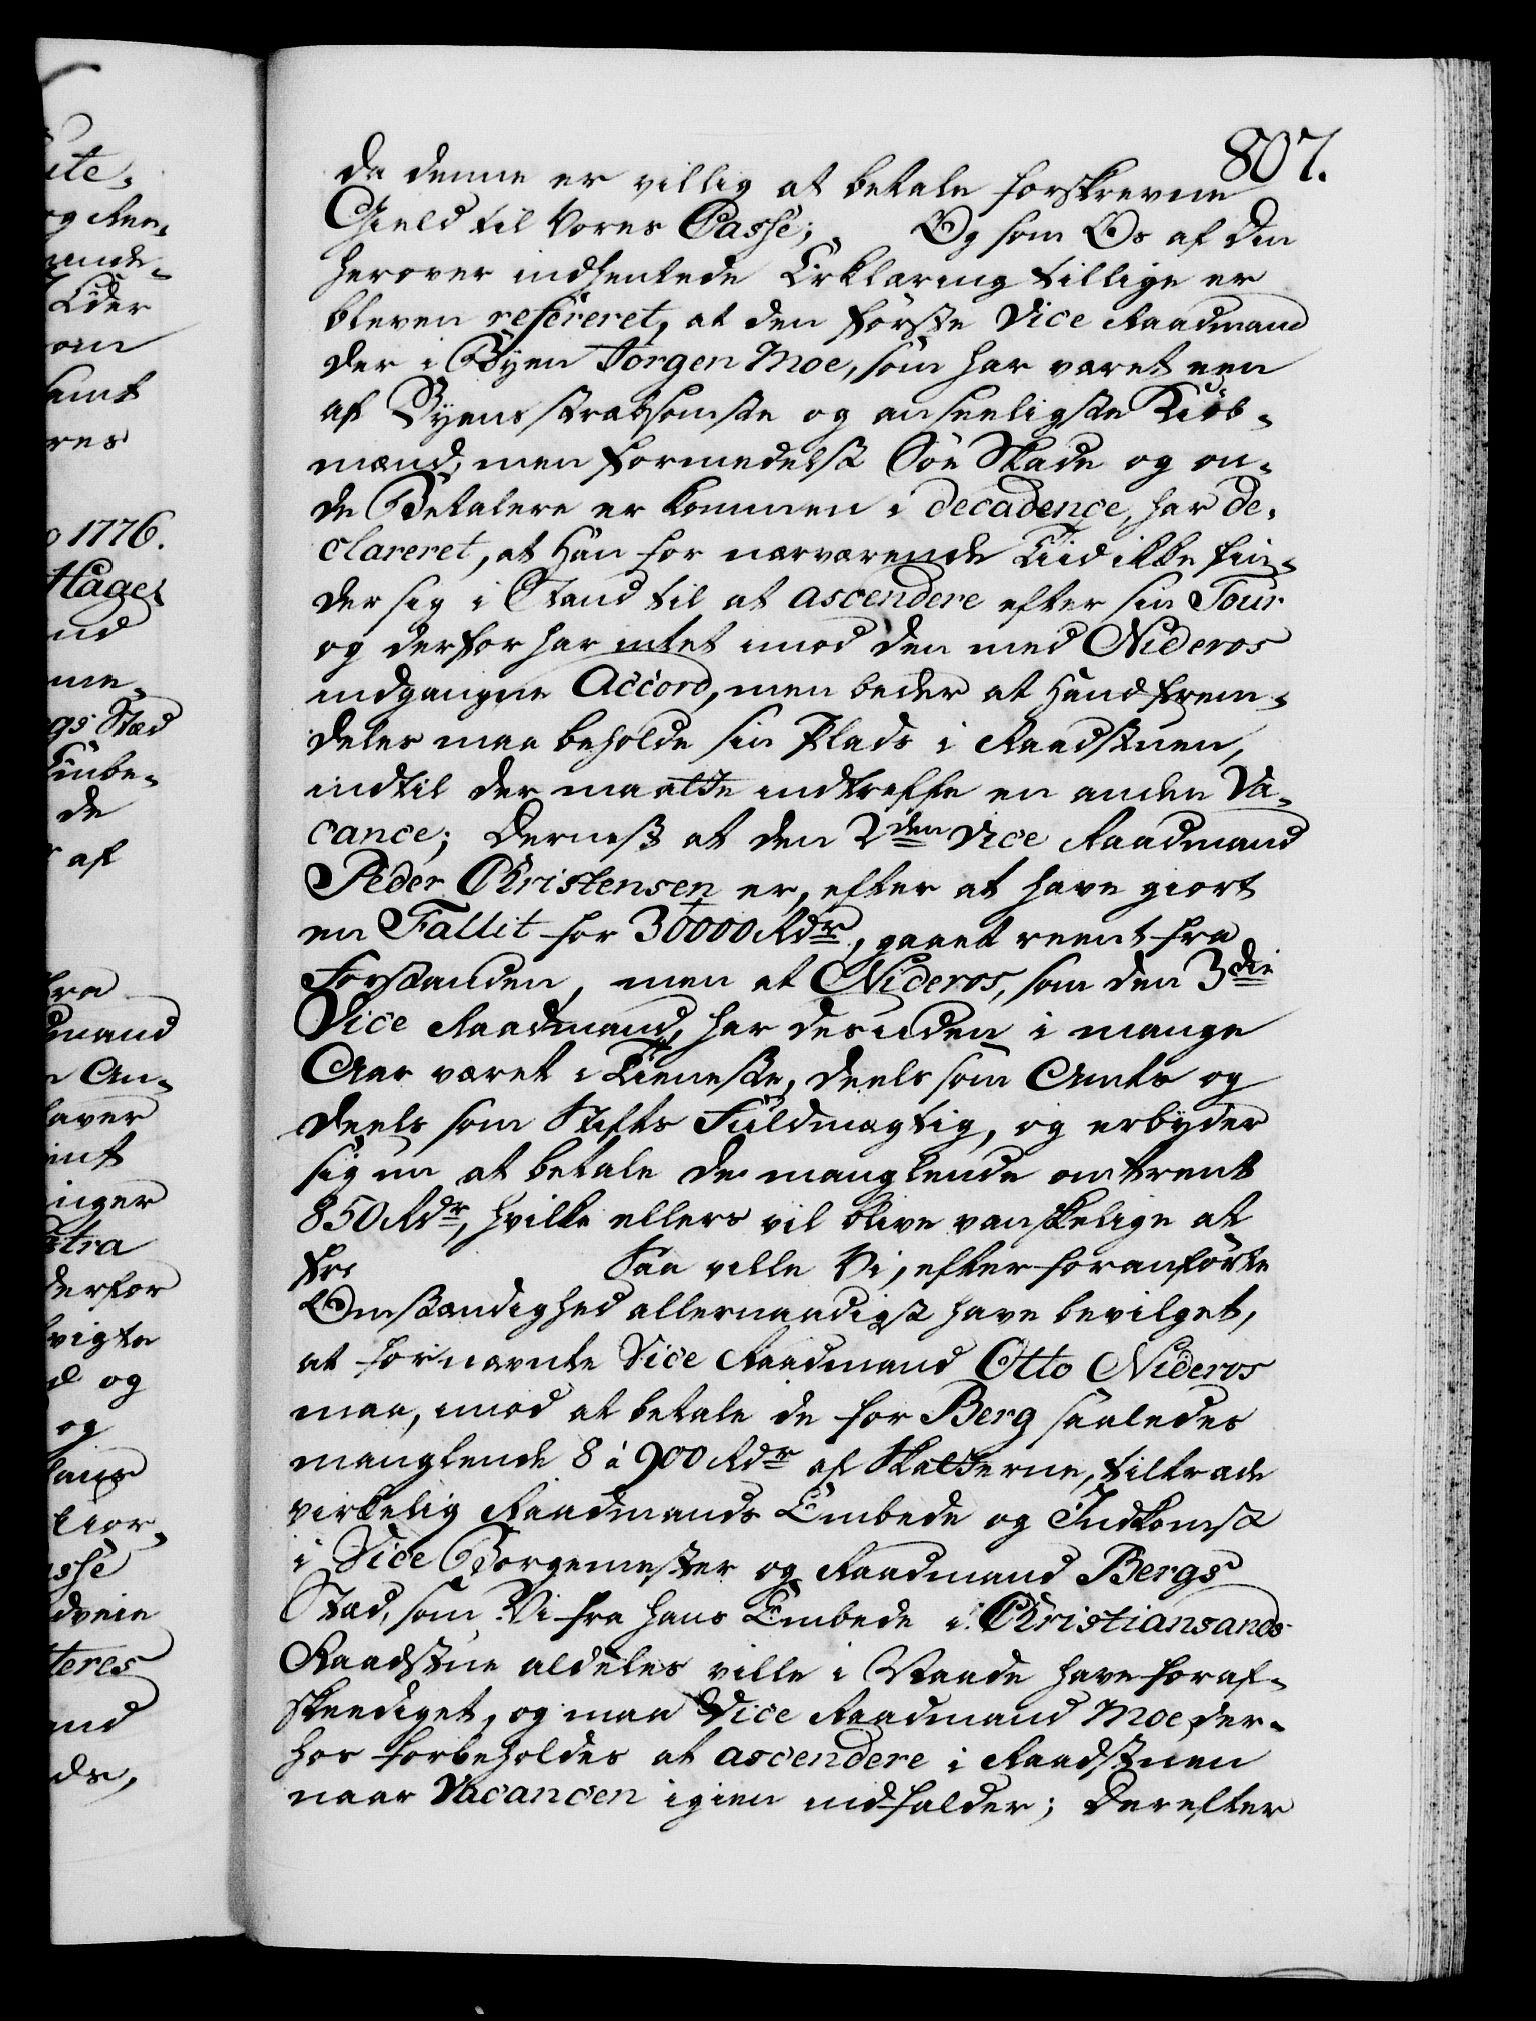 807.
da denne er villig at betale forskrevne
Gield til Vores Casse; Og som Os af din
herover indhentede Erklæring tillige er
bleven refereret, at den første Vice Raadmand
der i Byen Jørgen Moe, som har været een
af Byens stræbsomste og anseeligste Kiøb-
mænd, men formedelst Søe Skade og on-
de Betalere er kommen i decadence, har de-
clareret, at han for nærværende Tiid ikke fin-
der sig i Stand til at ascendere efter sin Tour
og derfor har intet imod den med Nideros
indgangne Accord, men beder at hand frem-
deles maa beholde sin Plads i Raadstuen,
indtil der maatte indtreffe en anden Va-
cance; Dernest at den 2den Vice Raadmand
Peder Christensen er, efter at have giort
en Fallit for 30000 Rdr, gaaet reent fra
Forstanden, men at Nideros, som den 3die
Vice Raadmand, har desuden i mange
Aar været i Tieneste, deels som Amts og
deels som Stifts Fuldmægtig, og erbyder
sig nu at betale de manglende omtrent
850 Rdr, hvilke ellers vil blive vanskelige at
faae Saa ville Vi, efter foranførte
Omstændighed allernaadigst have bevilget,
at fornævnte Vice Raadmand Otto Nideros
maa, imod at betale de for Berg saaledes
manglende 8 à 900 Rdr af Skatterne, tiltræde
virkelig Raadmands Embede og Indkomst
i Vice Borgemester og Raadmand Bergs
Stæd, som Vi fra hans Embede i Christiansands
Raadstue aldeles ville i Naade have foraf-
skeediget, og maa Vice Raadmand Moe der-
hos forbeholdes at ascendere i Raadstuen
naar Vacancen igien indfalder; Derefter